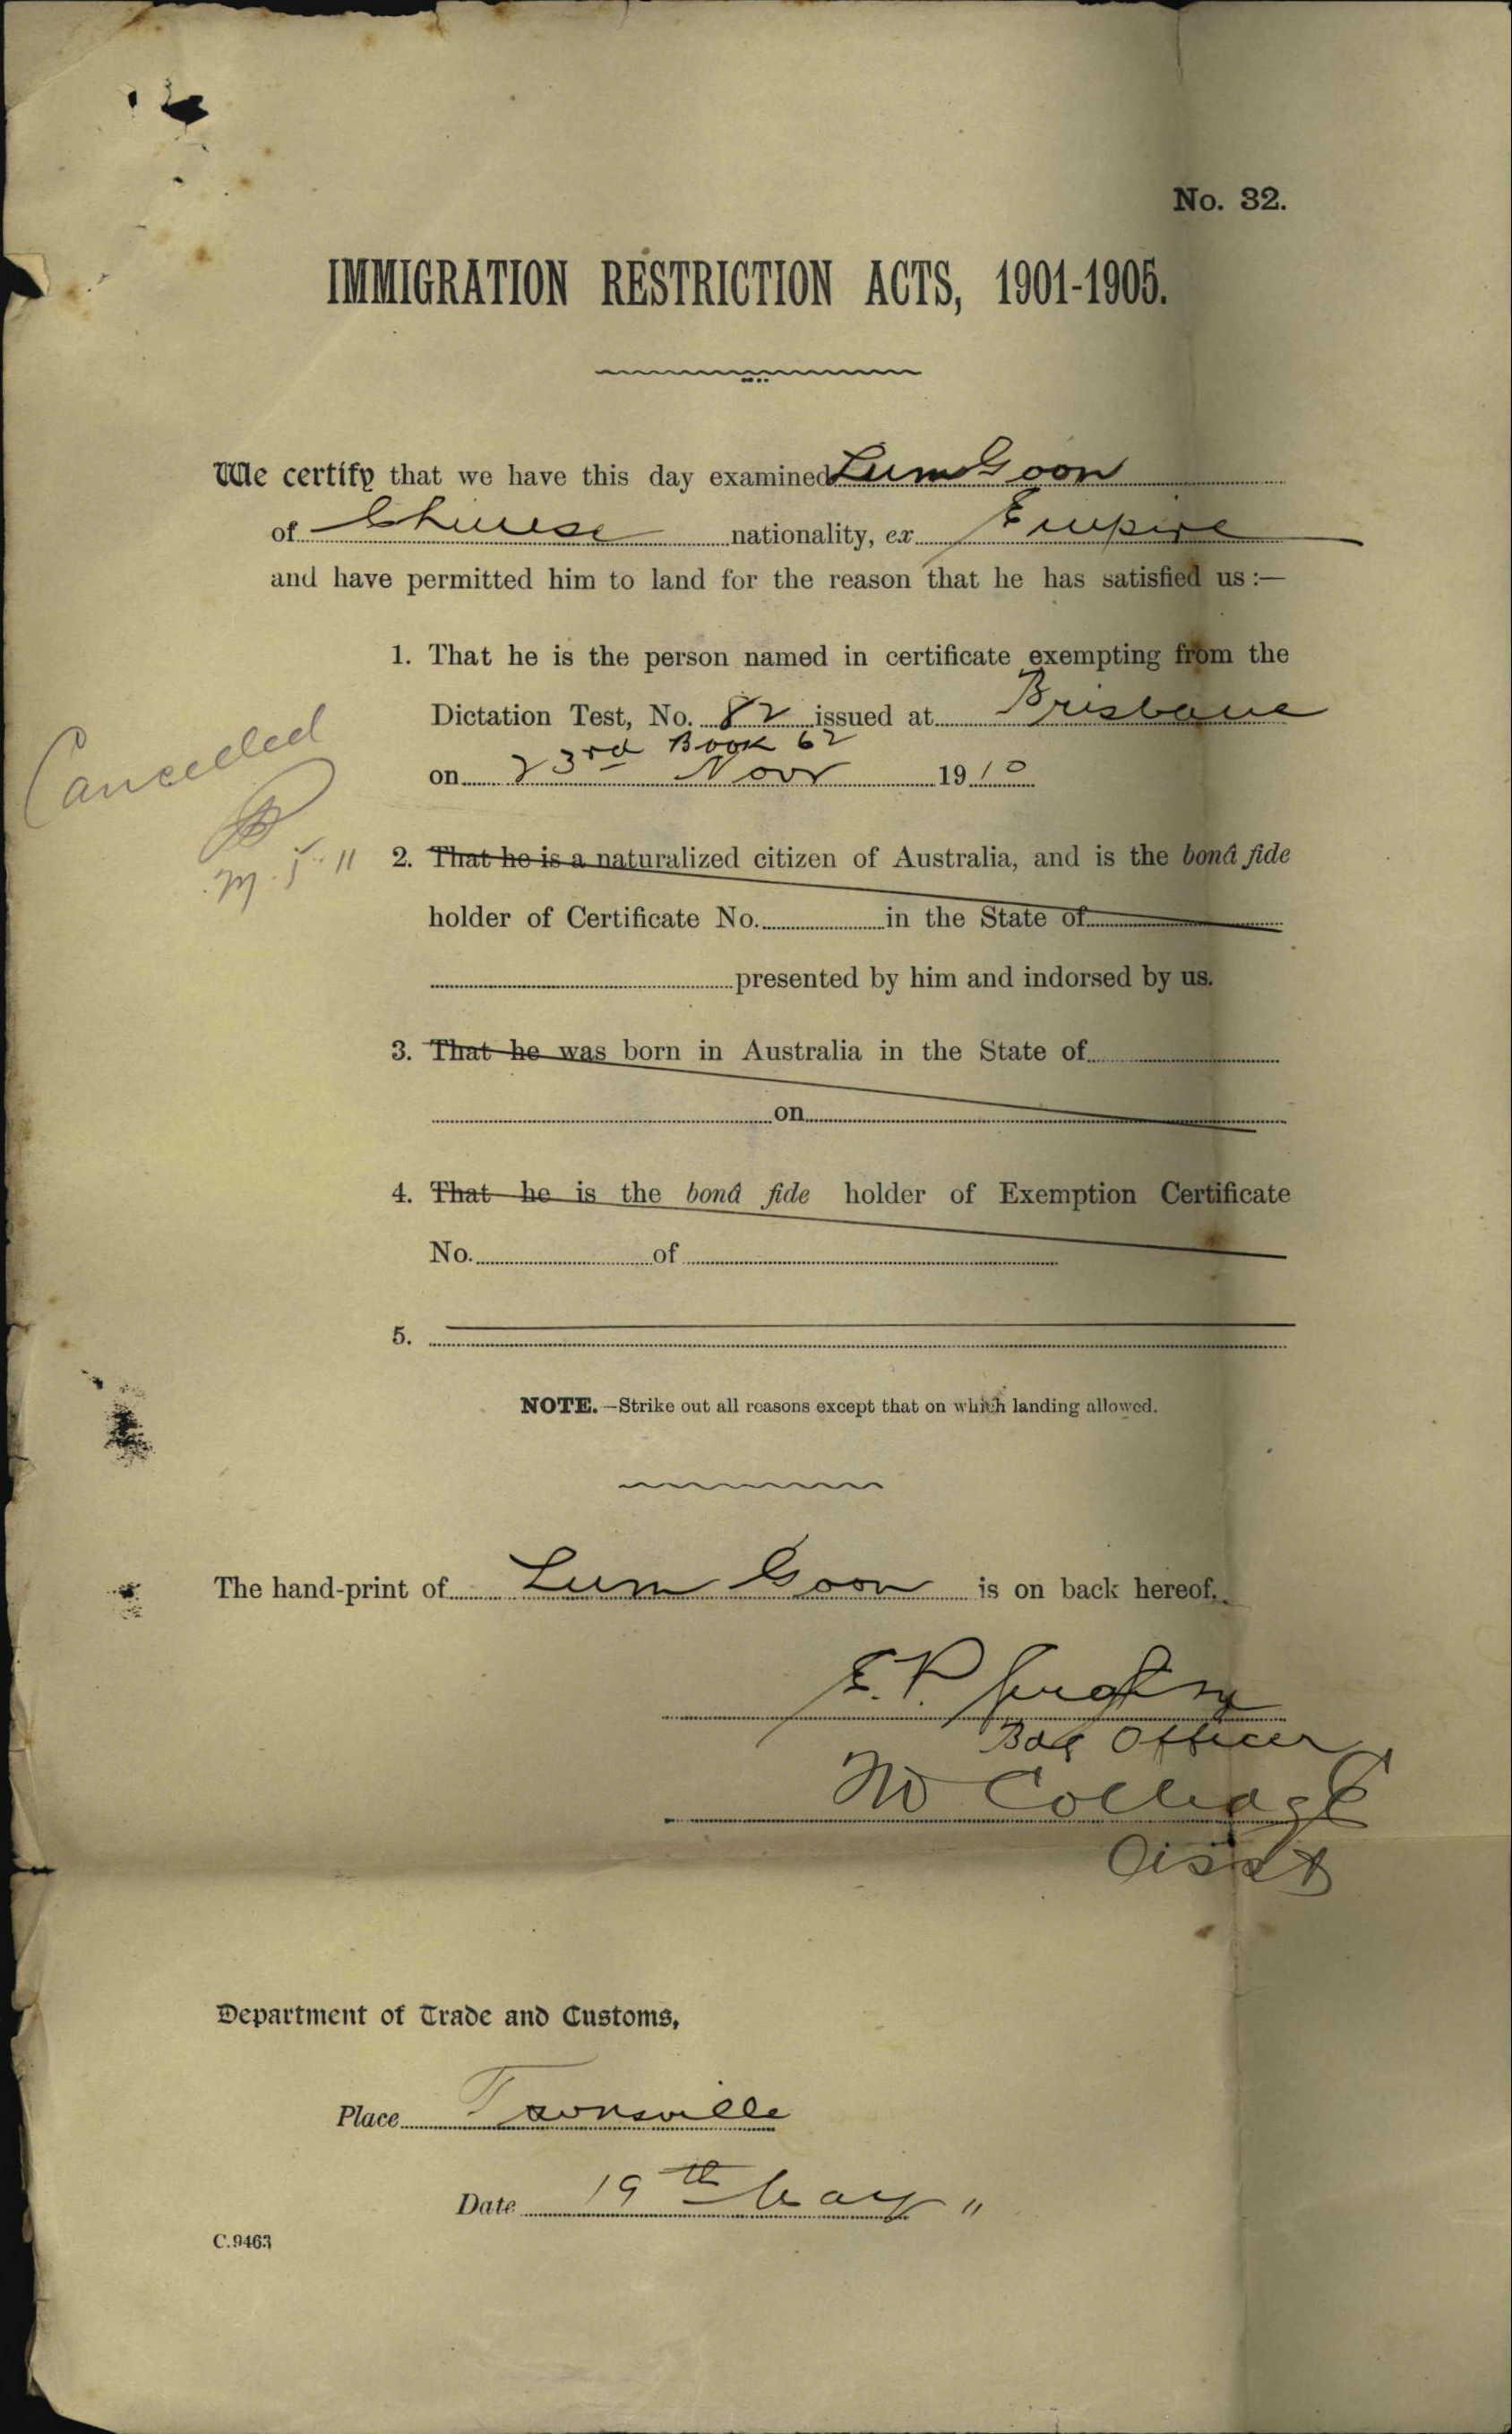 No. 32.
IMMIGRATION RESTRICTION ACTS, 1901-1905.
We certify that we have this day examined Lum Goon
of Chinese nationality, ex Empire
and have permitted him to land for the reason that he has satisfied us :—
1. That he is the person named in certificate exempting from the
Dictation Test, No. 82 issued at Brisbane
Book 62
on 23rd Novr 1910
Cancelled
2. That he is a naturalized citizen of Australia, and is the bonâ fide
holder of Certificate No. in the State of
presented by him and indorsed by us.
3. That he was born in Australia in the State of
on
4. That he is the bonâ fide holder of Exemption Certificate
No. of
5.
NOTE.—Strike out all reasons except that on which landing allowed.
The hand-print of Lum Goon is on back hereof.
E.P.
Bdg Officer
Asst
Department of Trade and Customs,
Place Townsville
Date 19th May 11
C.9463